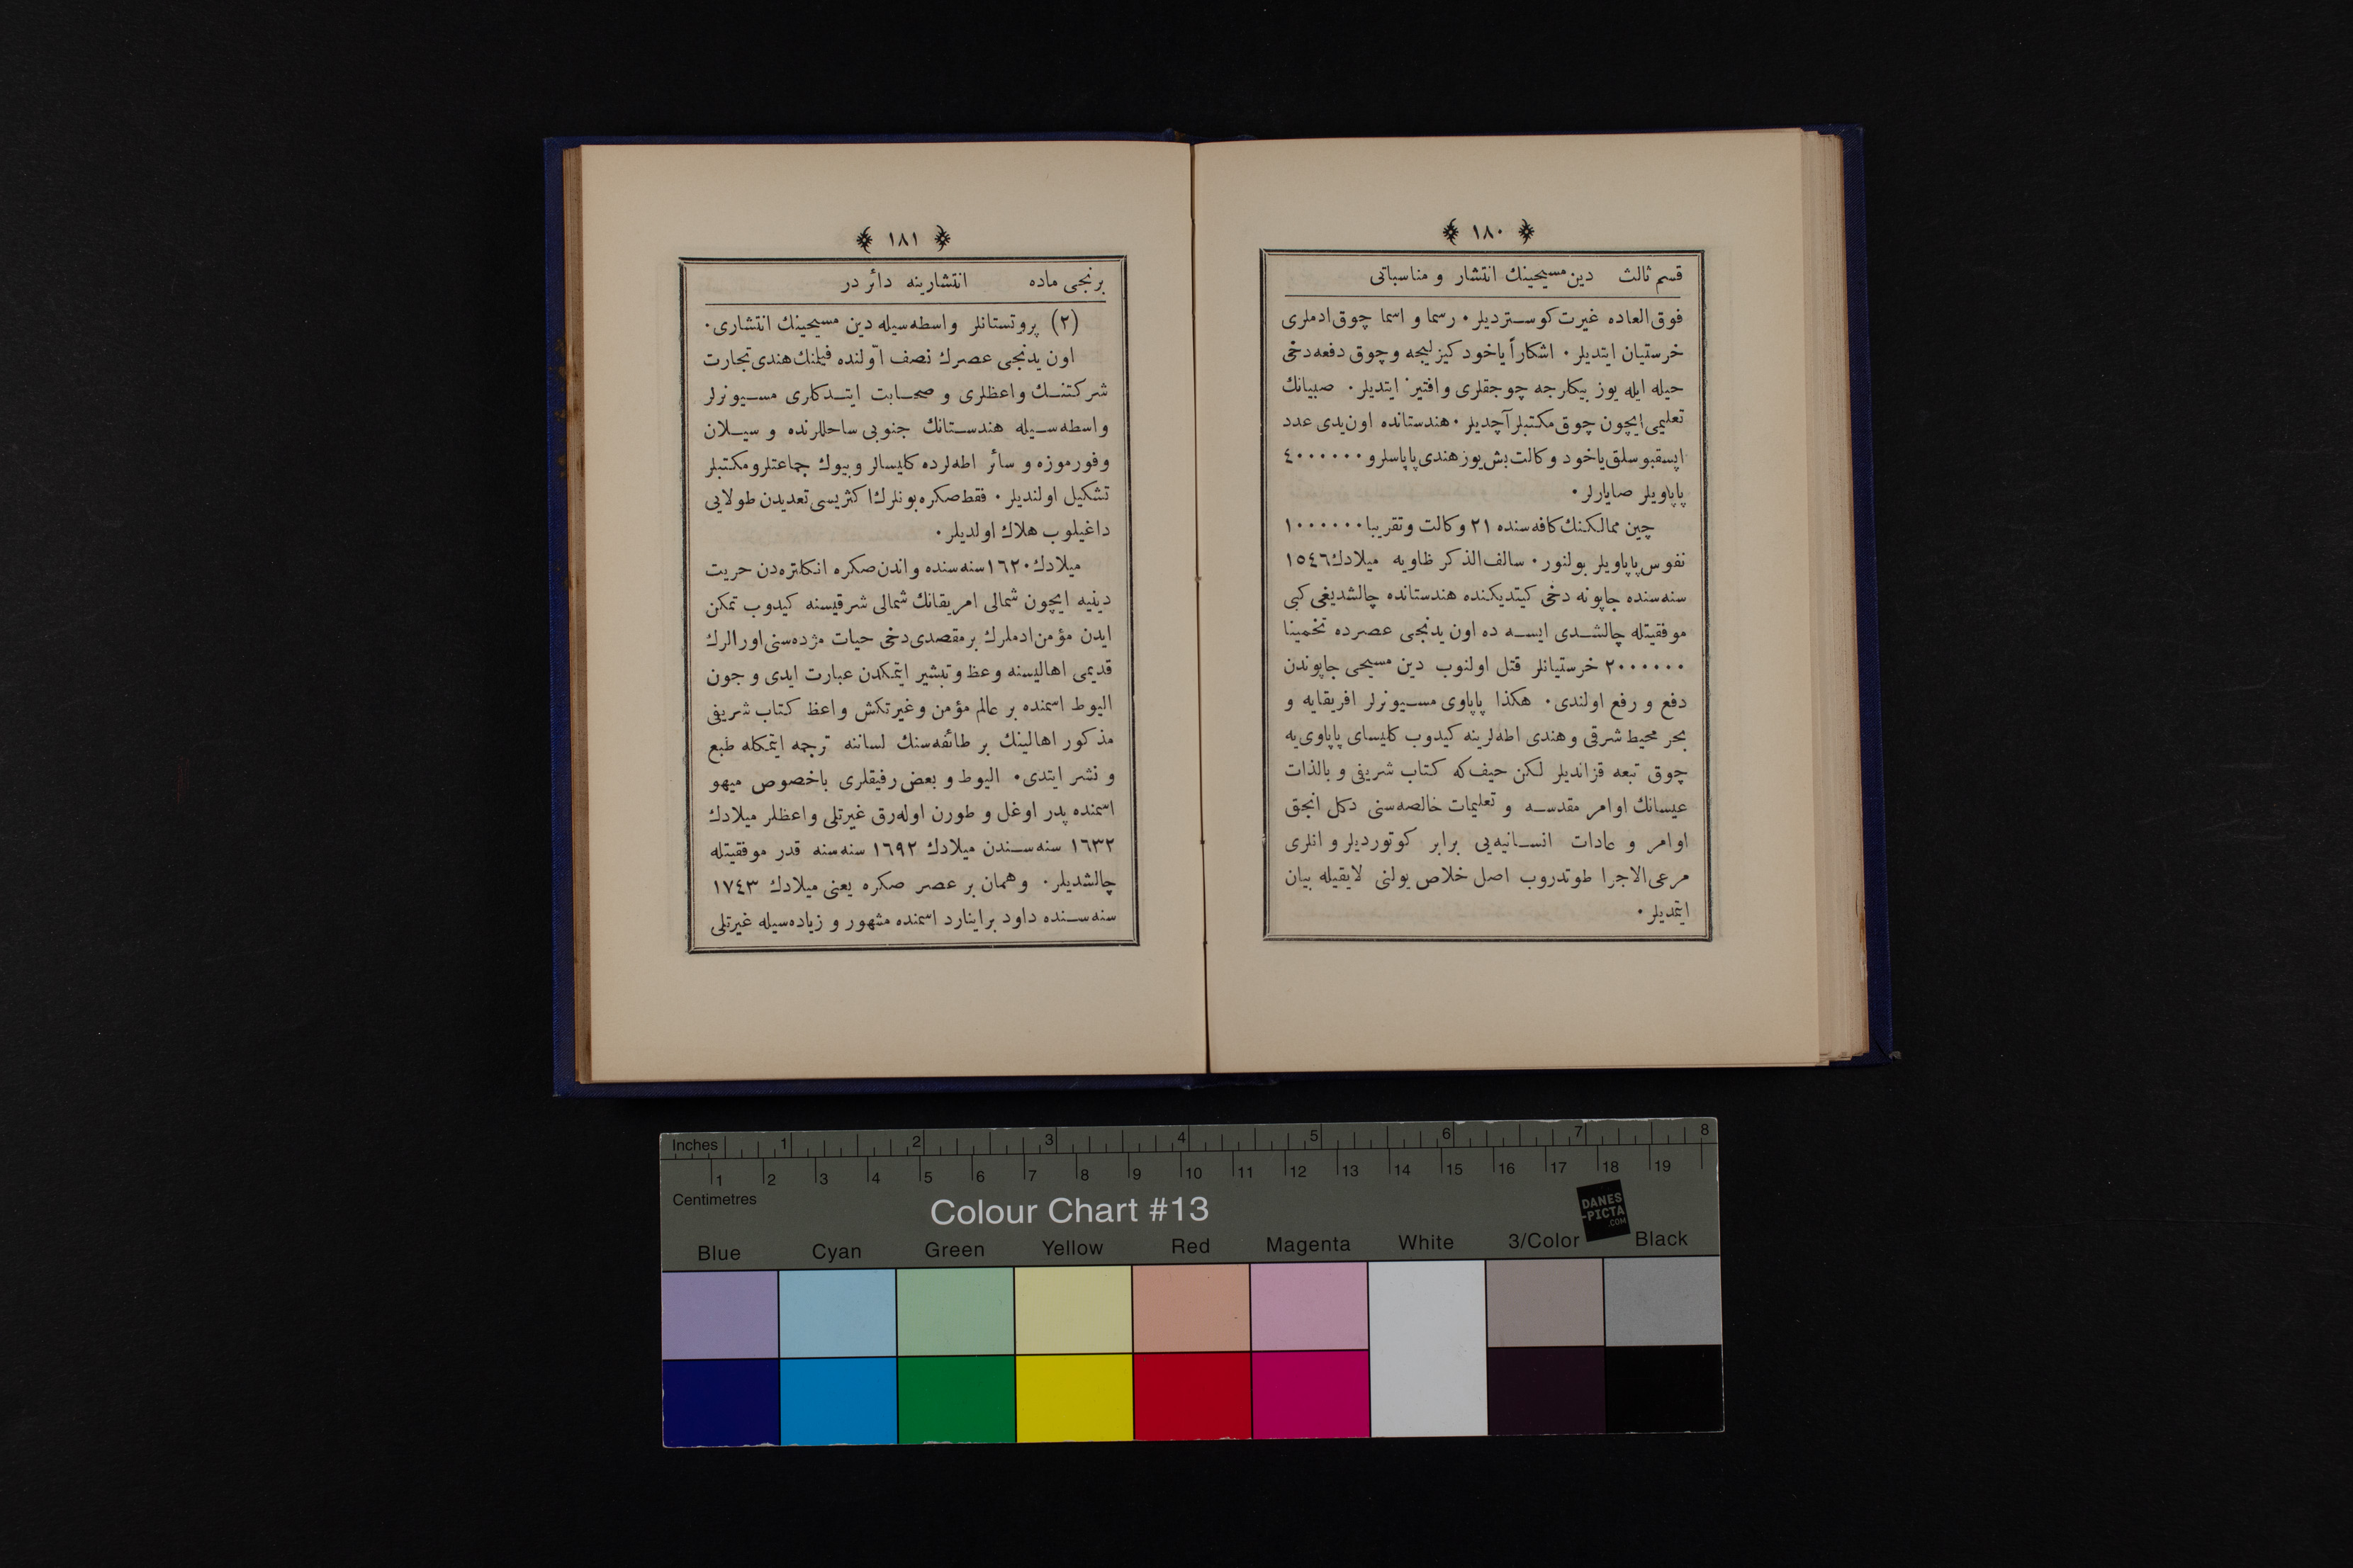 ١٨٠
قسم ثالث دین مسیحینك انتشار و مناسباتی
فوق‌العاده غیرت كوستردیلر. رسما و اسما چوق ادملری
خرستیان ایتدیلر. اشكاراً یاخود كیزلیجه و چوق دفعه دخی
حیله ایله یوز بیكلرجه چوجقلری وافتیز ایتدیلر. صبیانك
تعلیمی ایچون چوق مكتبلر آچدیلر. هندستانده اون یدی عدد
اپسقپوسلق یاخود وكالت بش یوز هندی پاپاسلر و ٤٠٠٠٠٠٠
پاپاویلر صایارلر.
چین ممالكنك كافه‌سنده ٢١ وكالت و تقریبا ١٠٠٠٠٠٠
نفوس پاپاویلر بولنور. سالف‌الذكر ظاویه میلادك ١٥٤٦
سنه‌سنده جاپونه دخی كیتدیكنده هندستانده چالشدیغی كبی
موفقیتله چالشدی ایسه ده اون یدنجی عصرده تخمینا
٢٠٠٠٠٠٠ خرستیانلر قتل اولنوب دین مسیحی جاپوندن
دفع و رفع اولندی. هكذا پاپاوی مسیونرلر افریقایه و
بحر محیط شرقی و هندی اطه‌لرینه كیدوب كلیسای پاپاوی‌یه
چوق تبعه قزاندیلر لكن حیف‌كه كتاب شریفی و بالذات
عیسانك اوامر مقدسه و تعلیمات خالصه‌سنی دكل انجق
اوامر و عادات انسانیه‌یی برابر كوتوردیلر و انلری
مرعی‌الاجرا طوتدروب اصل خلاص یولنی لایقیله بیان
ایتمدیلر.
١٨١
برنجی ماده انتشارینه دائر در
(٢) پروتستانلر واسطه‌سیله دین مسیحینك انتشاری.
اون یدنجی عصرك نصف اوّلنده فیلنك هندی تجارت
شركتنك واعظلری و صحابت ایتدكاری مسیونرلر
واسطه‌سیله هندستانك جنوبی ساحللرنده و سیلان
و فورموزه و سائر اطه‌لرده كلیسالر و بیوك جماعتلر و مكتبلر
تشكیل اولندیلر. فقط صكره بونلرك اكثریسی تعدیدن طولایی
داغیلوب هلاك اولدیلر.
میلادك ١٦٢٠ سنه‌سنده و اندن صكره انكلتره‌دن حریت
دینیه ایچون شمالی امریقانك شمالی شرقیسنه كیدوب تمكن
ایدن مؤمن ادملرك بر مقصدی دخی حیات مژده‌سنی اورالرك
قدیمی اهالیسنه وعظ و تبشیر ایتمكدن عبارت ایدی و جون
الیوط اسمنده بر عالم مؤمن و غیرتكش واعظ كتاب شریفی
مذكور اهالینك بر طائفه‌سنك لساننه ترجمه ایتمكله طبع
و نشر ایتدی. الیوط و بعض رفیقلری باخصوص میهو
اسمنده پدر اوغل و طورن اوله‌رق غیرتلی واعظلر میلادك
١٦٣٢ سنه‌سندن میلادك ١٦٩٢ سنه‌سنه قدر موفقیتله
چالشدیلر. و همان بر عصر صكره یعنی میلادك ١٧٤٣
سنه‌سنده داود براینارد اسمنده مشهور و زیاده‌سیله غیرتلی
Inches 1 2 3 4 5 6 7 8
1 2 3 4 5 6 7 8 9 10 11 12 13 14 15 16 17 18 19
Centimetres
Colour Chart #13
DANES
-PICTA
.COM
Blue Cyan Green Yellow Red Magenta White 3/Color Black